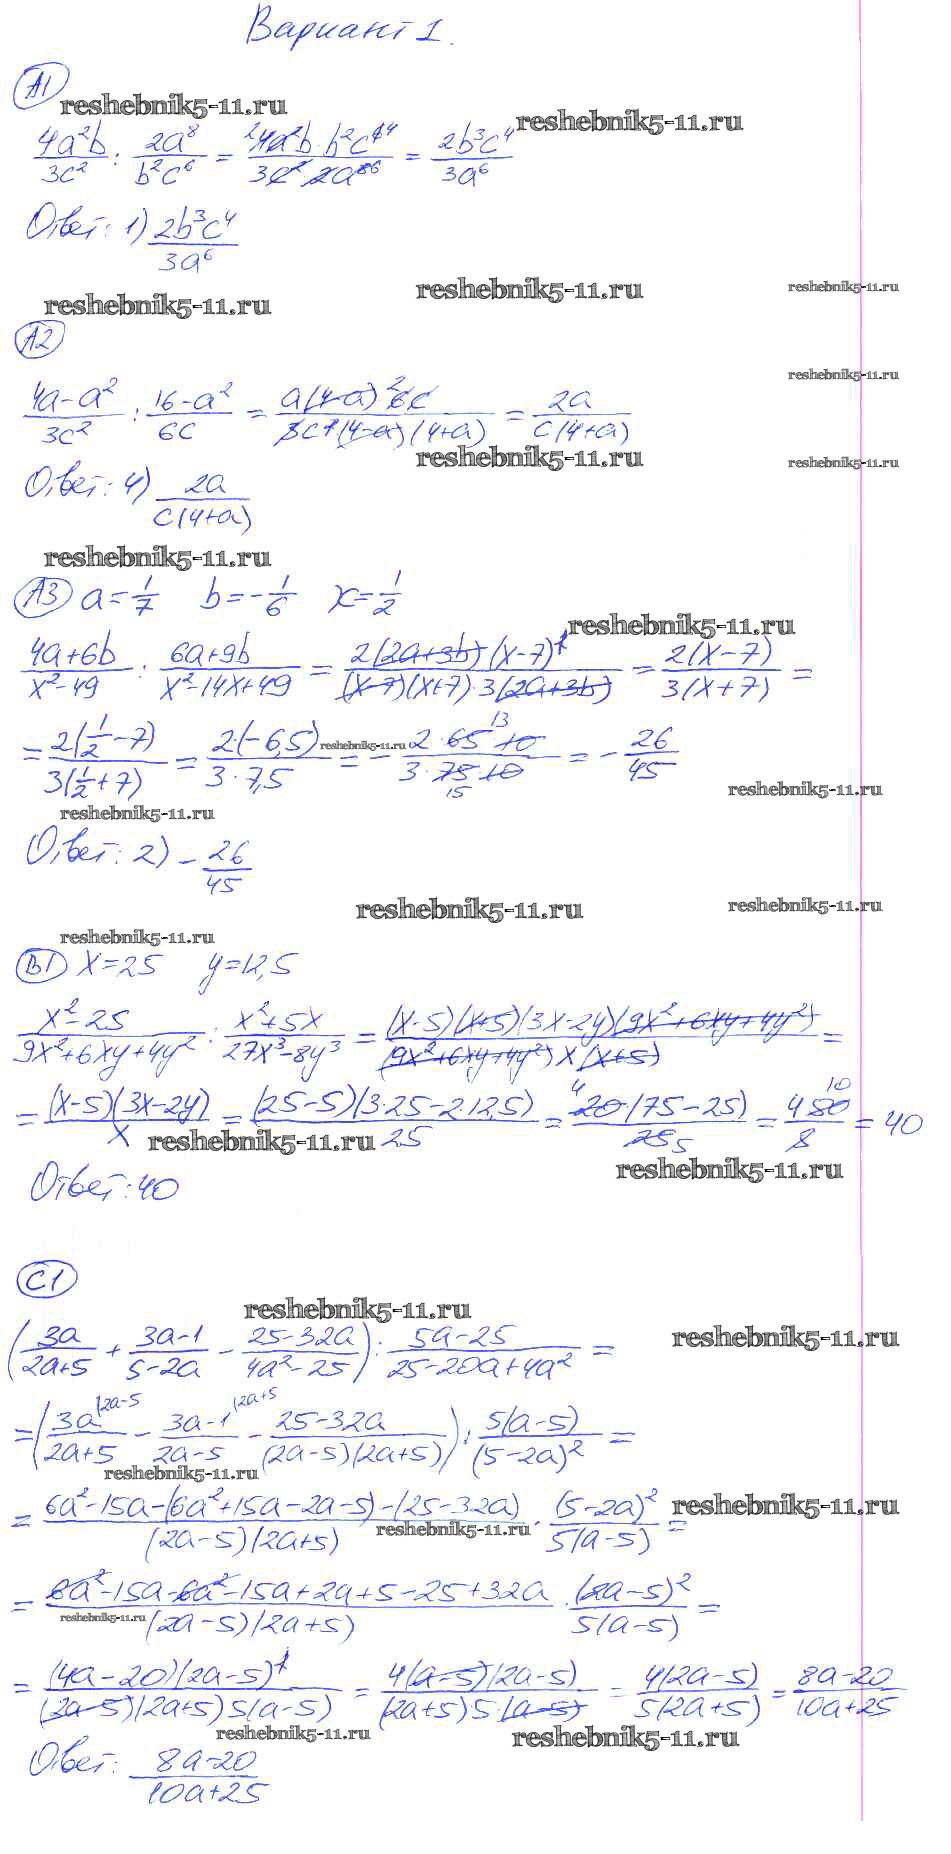 Вариант 1.
А1
reshebnik5-11.ru
reshebnik5-11.ru
4a²b/3c² : 2a⁸/b²c⁶ = ²4a²b·b²c⁶ ⁴/3c²·2a⁸ ⁶ = 2b³c⁴/3a⁶
Ответ: 1) 2b³c⁴/3a⁶
reshebnik5-11.ru reshebnik5-11.ru
reshebnik5-11.ru
А2
reshebnik5-11.ru
4a-a²/3c² : 16-a²/6c = a(4-a) ²6c/3c²(4-a)(4+a) = 2a/c(4+a)
reshebnik5-11.ru reshebnik5-11.ru
Ответ: 4) 2a/c(4+a)
reshebnik5-11.ru
А3 a=1/7 b=-1/6 x=1/2
reshebnik5-11.ru
4a+6b/x²-49 : 6a+9b/x²-14x+49 = 2(2a+3b)(x-7)²/(x-7)(x+7)·3(2a+3b) = 2(x-7)/3(x+7) =
= 2(1/2-7)/3(1/2+7) = 2·(-6,5)/3·7,5 reshebnik5-11.ru = - 2·65 13 10/3·75·10 15 = - 26/45
reshebnik5-11.ru
reshebnik5-11.ru
Ответ: 2) - 26/45
reshebnik5-11.ru reshebnik5-11.ru
reshebnik5-11.ru
В1 x=25 y=12,5
x²-25/9x²+6xy+4y² : x²+5x/27x³-8y³ = (x-5)(x+5)(3x-2y)(9x²+6xy+4y²)/(9x²+6xy+4y²)x(x+5) =
= (x-5)(3x-2y)/x = (25-5)(3·25-2·12,5)/25 = 4 20·(75-25)/25 5 = 4·50 10/5 = 40
reshebnik5-11.ru
reshebnik5-11.ru
Ответ: 40
С1
reshebnik5-11.ru
reshebnik5-11.ru
(3a/2a+5 + 3a-1/5-2a - 25-32a/4a²-25) : 5a-25/25-20a+4a² =
= (3a |2a-5/2a+5 - 3a-1 |2a+5/2a-5 - 25-32a/(2a-5)(2a+5)) : 5(a-5)/(5-2a)² =
reshebnik5-11.ru
= 6a²-15a-(6a²+15a-2a-5)-(25-32a)/(2a-5)(2a+5) · (5-2a)²/5(a-5) =
reshebnik5-11.ru
reshebnik5-11.ru
= 6a²-15a-6a²-15a+2a+5-25+32a/(2a-5)(2a+5) · (2a-5)²/5(a-5) =
reshebnik5-11.ru
= (4a-20)(2a-5)²/(2a-5)(2a+5)5(a-5) = 4(a-5)(2a-5)/(2a+5)5·(a-5) = 4(2a-5)/5(2a+5) = 8a-20/10a+25
reshebnik5-11.ru reshebnik5-11.ru
Ответ: 8a-20/10a+25